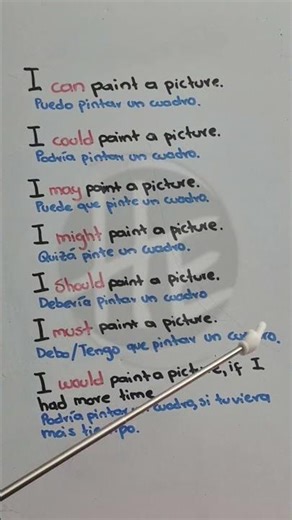 I can paint a picture.
Puedo pintar un cuadro.
I could paint a picture.
Podría pintar un cuadro.
I may paint a picture.
Puede que pinte un cuadro.
I might paint a picture.
Quizá pinte un cuadro.
I should paint a picture.
Debería pintar un cuadro
I must paint a picture.
Debo/Tengo que pintar un
I would paint a picture, if I
had more time
Podría pintar cuadro, si tuviera
más